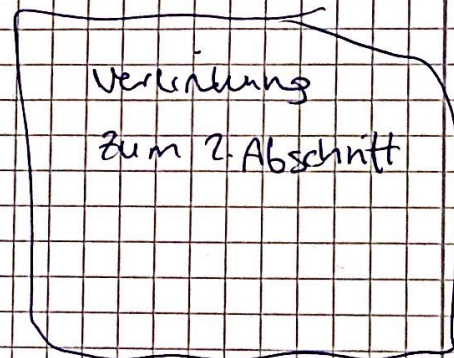 Verlinkung
zum 2. Abschnitt